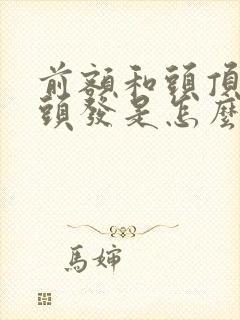 前額和頭頂
頭發是怎麼
馬婶